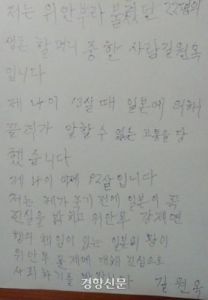 저는 위안부라 불렸던 22명의
할머니 중 한 사람 길원옥
입니다
제 나이 13살 때 일본에 의해
끌려가 말할 수 없는 고통을 당
했습니다
제 나이 92살입니다
저는 제가 죽기 전에 일본이 꼭
진실을 밝히고 위안부 문제
책임이 있는 일본의 왕이
위안부 문제에 대해 진심으로
사죄하기를 바랍니다
길원옥
경향신문